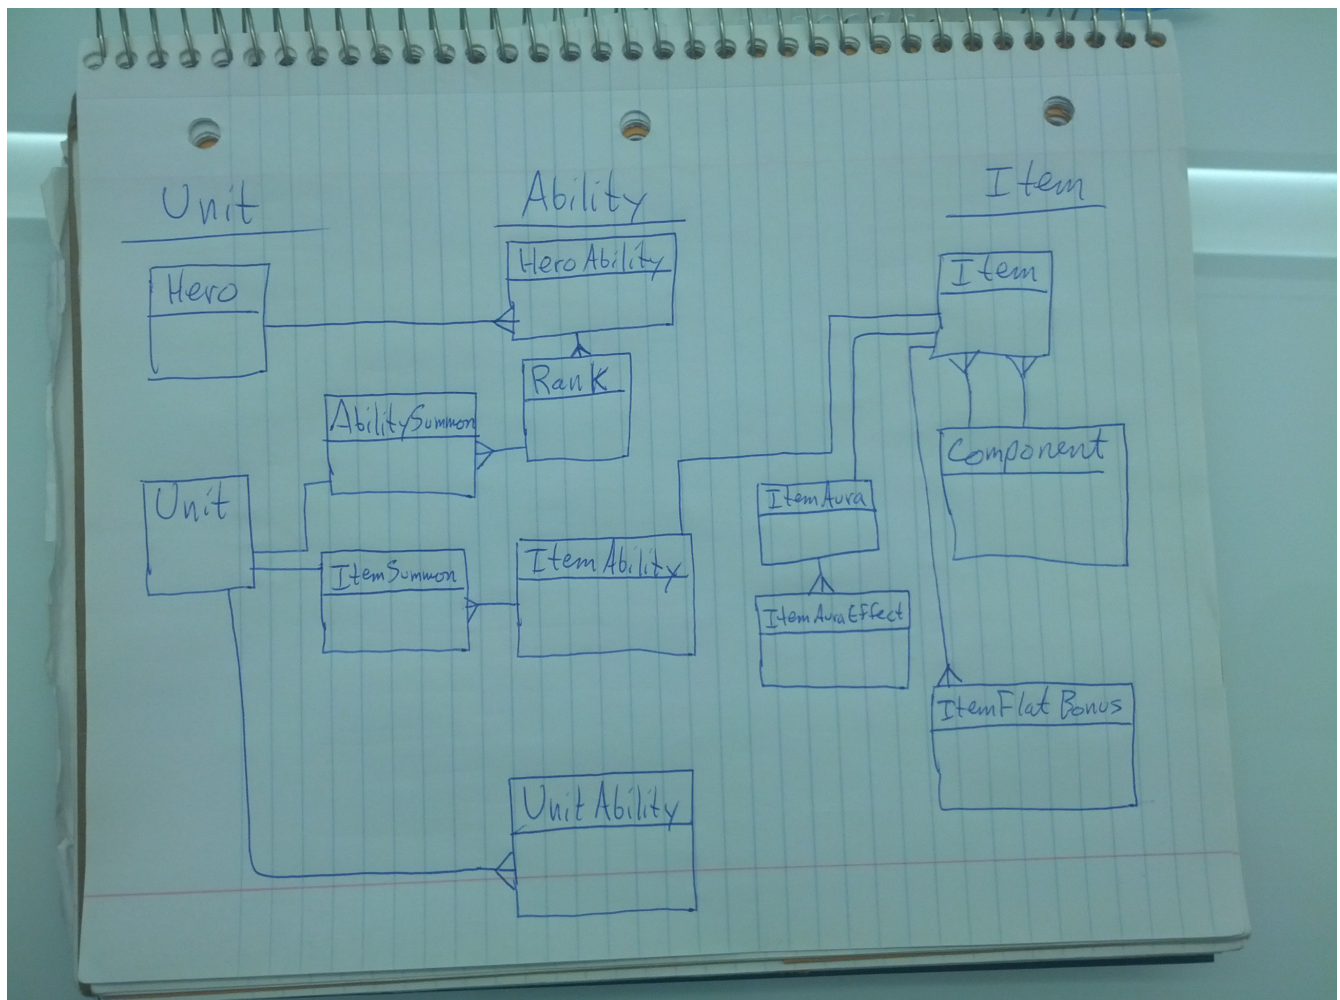 Unit
Ability
Item
Hero
HeroAbility
Item
Rank
AbilitySummon
Component
Unit
ItemAura
ItemSummon
ItemAbility
ItemAuraEffect
ItemFlatBonus
UnitAbility